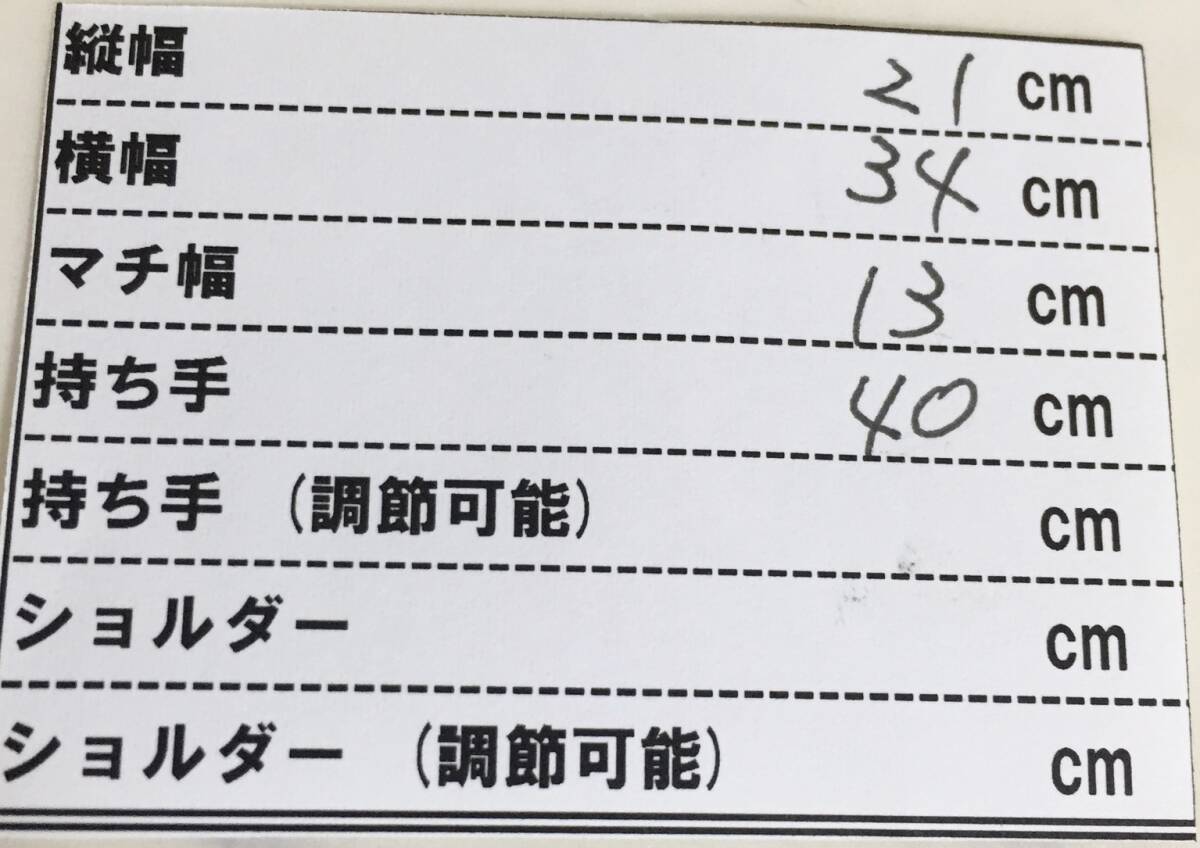 縦幅 21 cm
横幅 34 cm
マチ幅 13 cm
持ち手 40 cm
持ち手 (調節可能) cm
ショルダー cm
ショルダー (調節可能) cm